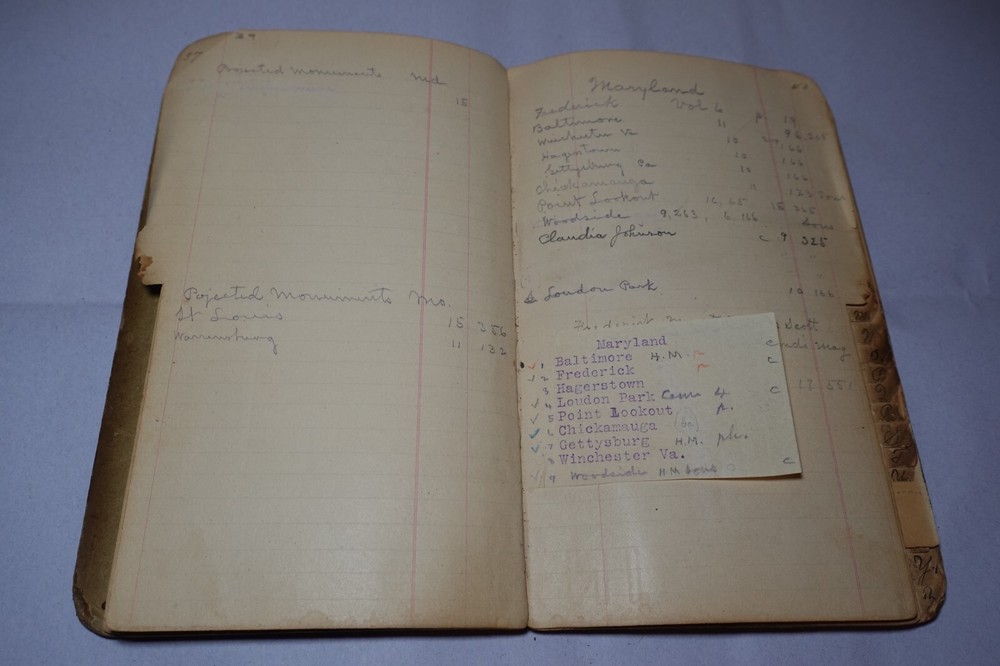 37 29
Projected Monuments Md
15
Projected Monuments Mo.
St Louis 15 356
Warrensburg 11 133
Maryland
Frederick Vol 6 p 19
Baltimore 11 96,265
Winchester Va 10 166
Hagerstown 10 166
Gettysburg Pa 10 166
Chickamauga 11 123
Point Lookout 16, 65 15 265
Woodside 9, 263, 6. 166
Claudia Johnson c 9 325
Loudon Park 10 166
Scott
17 551
Maryland
1 Baltimore H.M. c
2 Frederick c
3 Hagerstown
4 Loudon Park Cem 4 c
5 Point Lookout p.
6 Chickamauga
7 Gettysburg H.M. ph.
8 Winchester Va.
9 Woodside H.M. Sons c